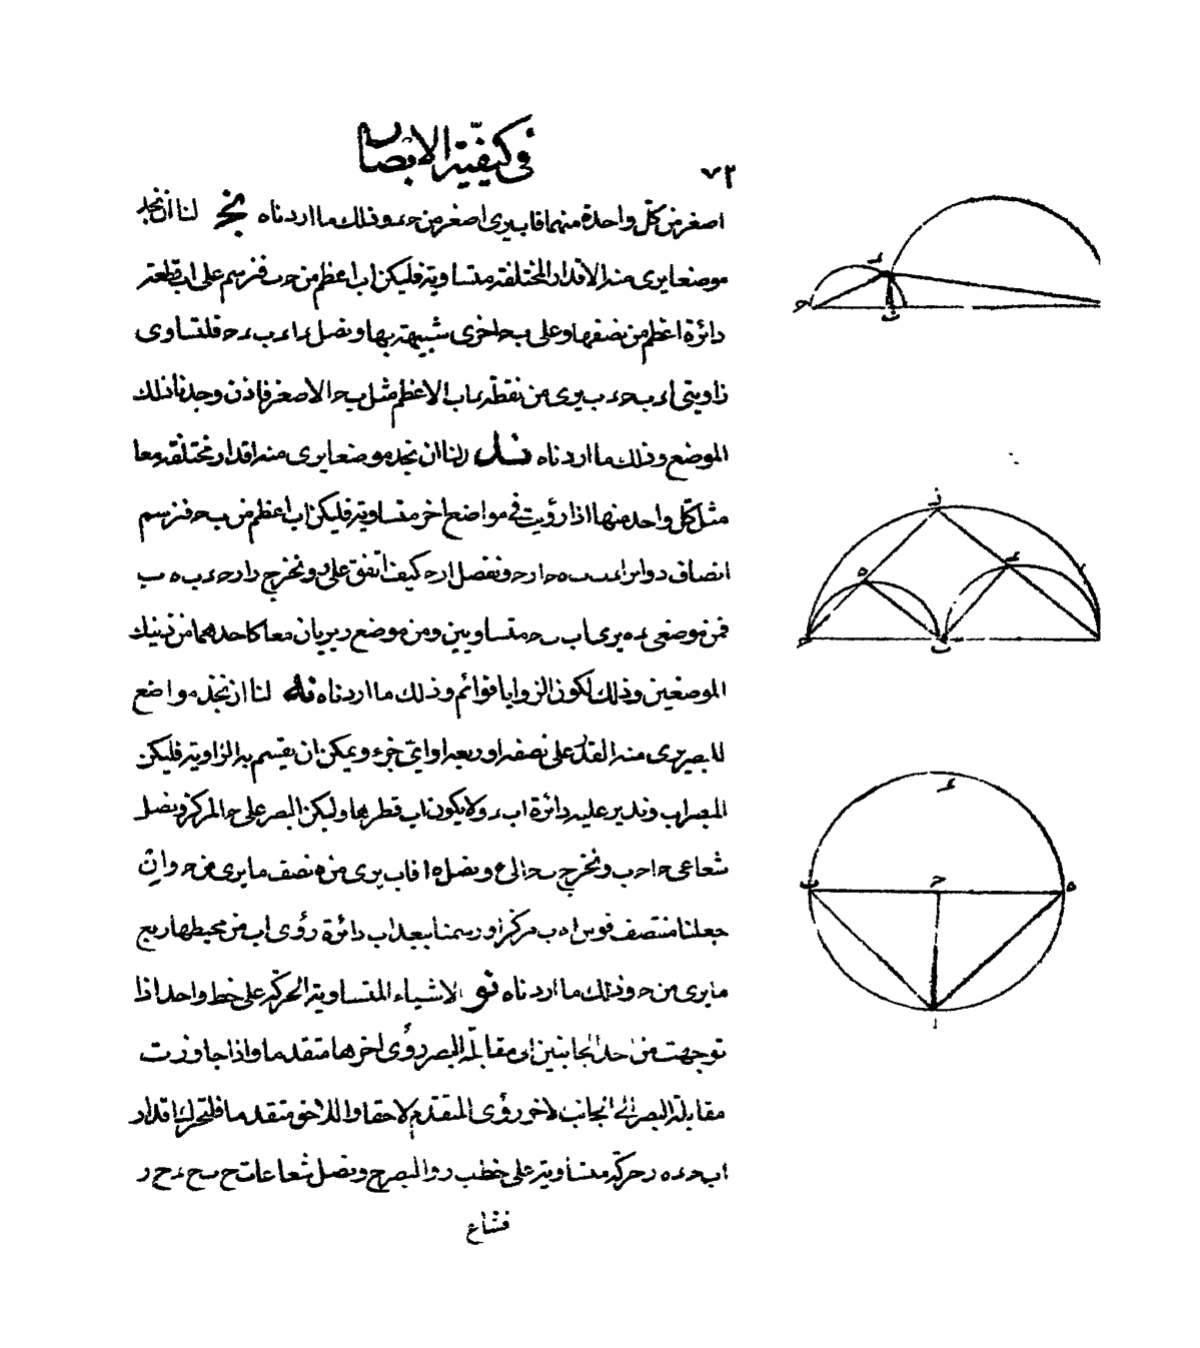 في كيفية الابصار
٧٣
اصغر من كل واحدة منهما فاب يرى اصغر من حء وذلك ما اردناه نج لنا ان نجد
موضعا يرى منه الاقدار المختلفة متساوية فليكن اب اعظم من حب فنرسم على اب قطعة
دائرة اعظم من نصفها وعلى بح اخرى شبيهة بها ونصل ءا ءب ءح فلتساوى
زاويتى اءب حءب يرى من نقطة ء اب الاعظم مثل بح الاصغر فاذن وجدنا ذلك
الموضع وذلك ما اردناه ند لنا ان نجد موضعا يرى منه اقدار مختلفة معا
مثل كل واحد منها اذا رؤيت في مواضع اخر متساوية فليكن اب اعظم من بح فنرسم
انصاف دوائر اءب به ح ارح ونفصل ارح كيف اتفق على ر ونخرج را رح ءب ه ب
فمن موضعى ء ه يرى اب بح متساويين ومن موضع ر يريان معا كاحدهما من ذينك
الموضعين وذلك لكون الزوايا قوائم وذلك ما اردناه نه لنا ان نجد مواضع
للبصر يرى منه القدر على نصفه او ربعه او اى جزء ويمكن ان يقسم به الزاوية فليكن
المبصر اب وندير عليه دائرة اب ء ولا يكون اب قطرها وليكن البصر على ح المركز ونصل
شعاعى حا حب ونخرج بح الى ه ونصل ه ا فاب يرى من ه نصف ما يرى من ح وان
جعلنا منتصف قوس اه ب مركزا ورسمنا ببعد اب دائرة رؤى اب من محيطها ربع
ما يرى من ح وذلك ما اردناه نو الاشياء المتساوية الحركة على خط واحد اذا
توجهت من احد الجانبين الى مقابلة البصر رؤى اخرها متقدما واذا جاوزت
مقابلة البصر الى الجانب الاخر رؤى المتقدم لاحقا واللاحق متقدما فلتتحرك اقدار
اب حء ه ر حركة متساوية على خط ب ر والبصر ح ونصل شعاعات ح ب ح ء ح ر
فشعاع
ء
ح
ب
ز
ء
ه
ح
ب
ء
ب
ح
ه
ا